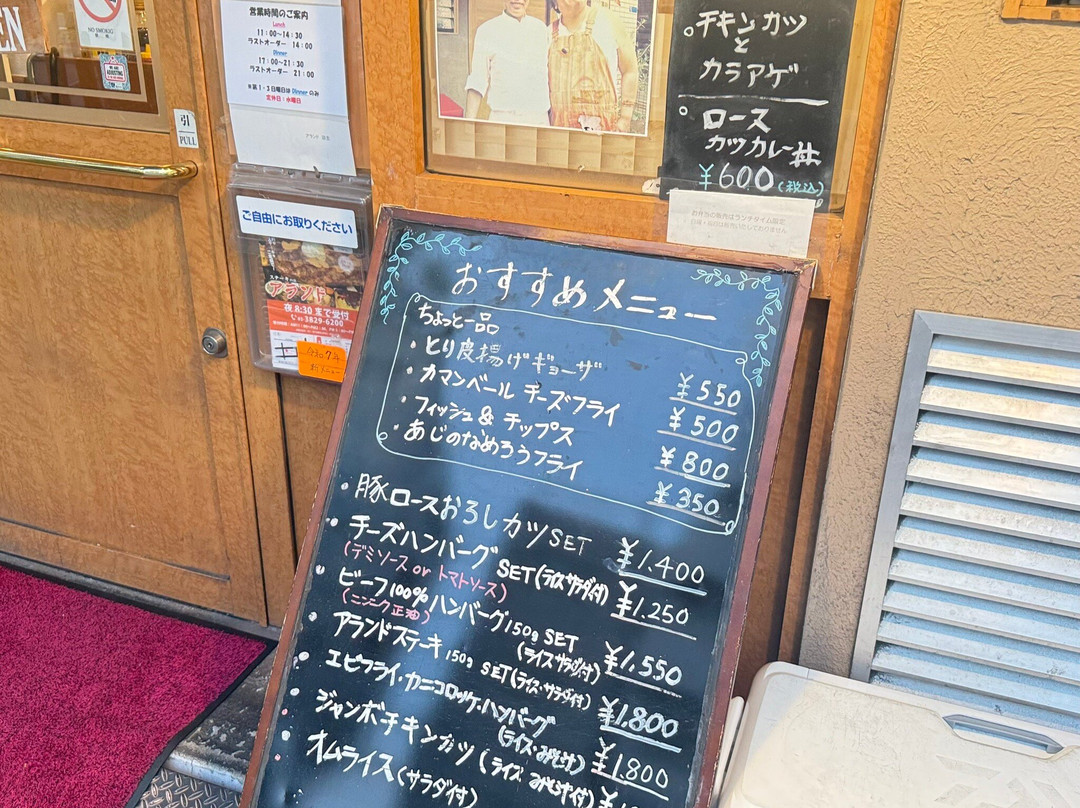 EN
NO SMOKING
営業時間のご案内
Lunch
11:00~14:30
ラストオーダー 14:00
Dinner
17:00~21:30
ラストオーダー 21:00
※第1・3日曜日はDinnerのみ
定休日:水曜日
引
PULL
ご自由にお取りください
アランド
夜8:30まで受付
3829-6200
チキンカツ
と
カラアゲ
ロース
カツカレー丼
¥600(税込)
お弁当の販売はランチタイム限定
おすすめメニュー
ちょっと一品
・とり皮揚げギョーザ ¥550
・カマンベール チーズフライ ¥500
・フィッシュ&チップス ¥800
・あじのなめろうフライ ¥350
・豚ロースおろしカツSET ¥1.400
・チーズハンバーグSET(ライスサラダ付) ¥1.250
(デミソース or トマトソース)
・ビーフ100%ハンバーグ150g SET ¥1.550
(ニンニク正油)
(ライスサラダ付)
・アランドステーキ150g SET(ライス・サラダ付) ¥1.800
・エビフライ・カニコロッケ・ハンバーグ ¥1.800
(ライス・みそ汁付)
・ジャンボチキンカツ(ライス みそ汁付)
・オムライス(サラダ付)